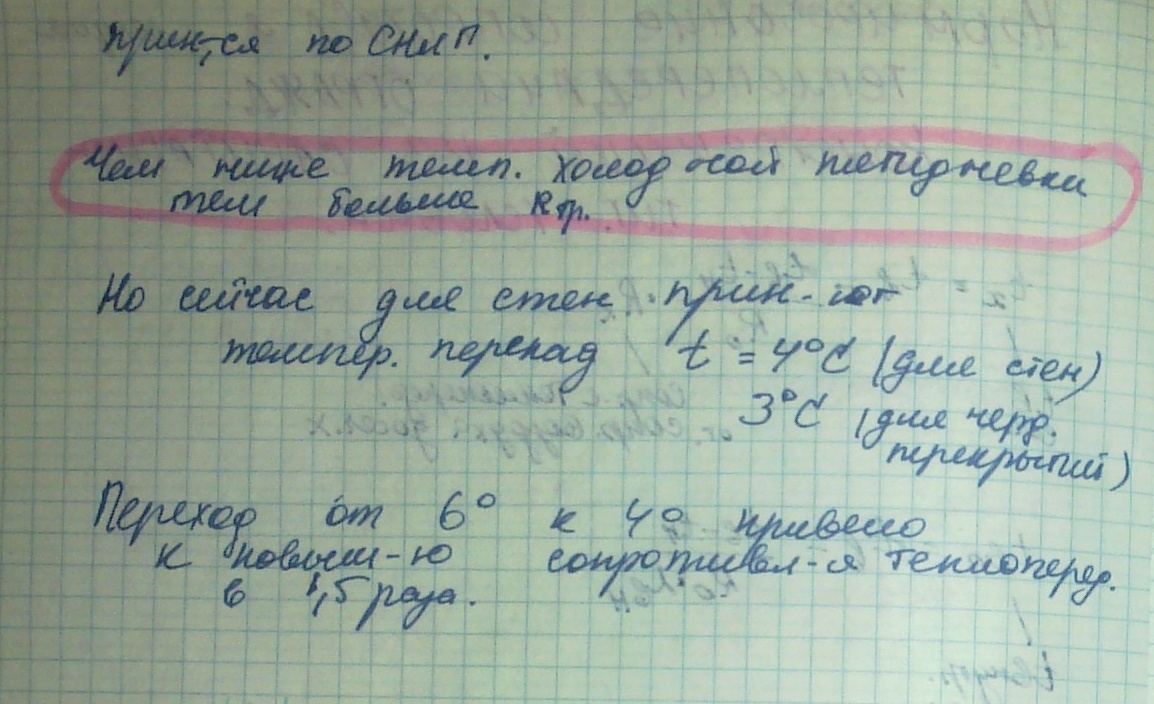 прин-ся по СНиП.
Чем ниже темп. холодной пятидневки
тем больше Rтр.
Но сейчас для стен прин-ют
темпер. перепад t = 4°C (для стен)
3°C (для черд.
перекрытий)
Переход от 6° к 4° привело
к повыш-ю сопротивл-я теплоперед.
в 1,5 раза.